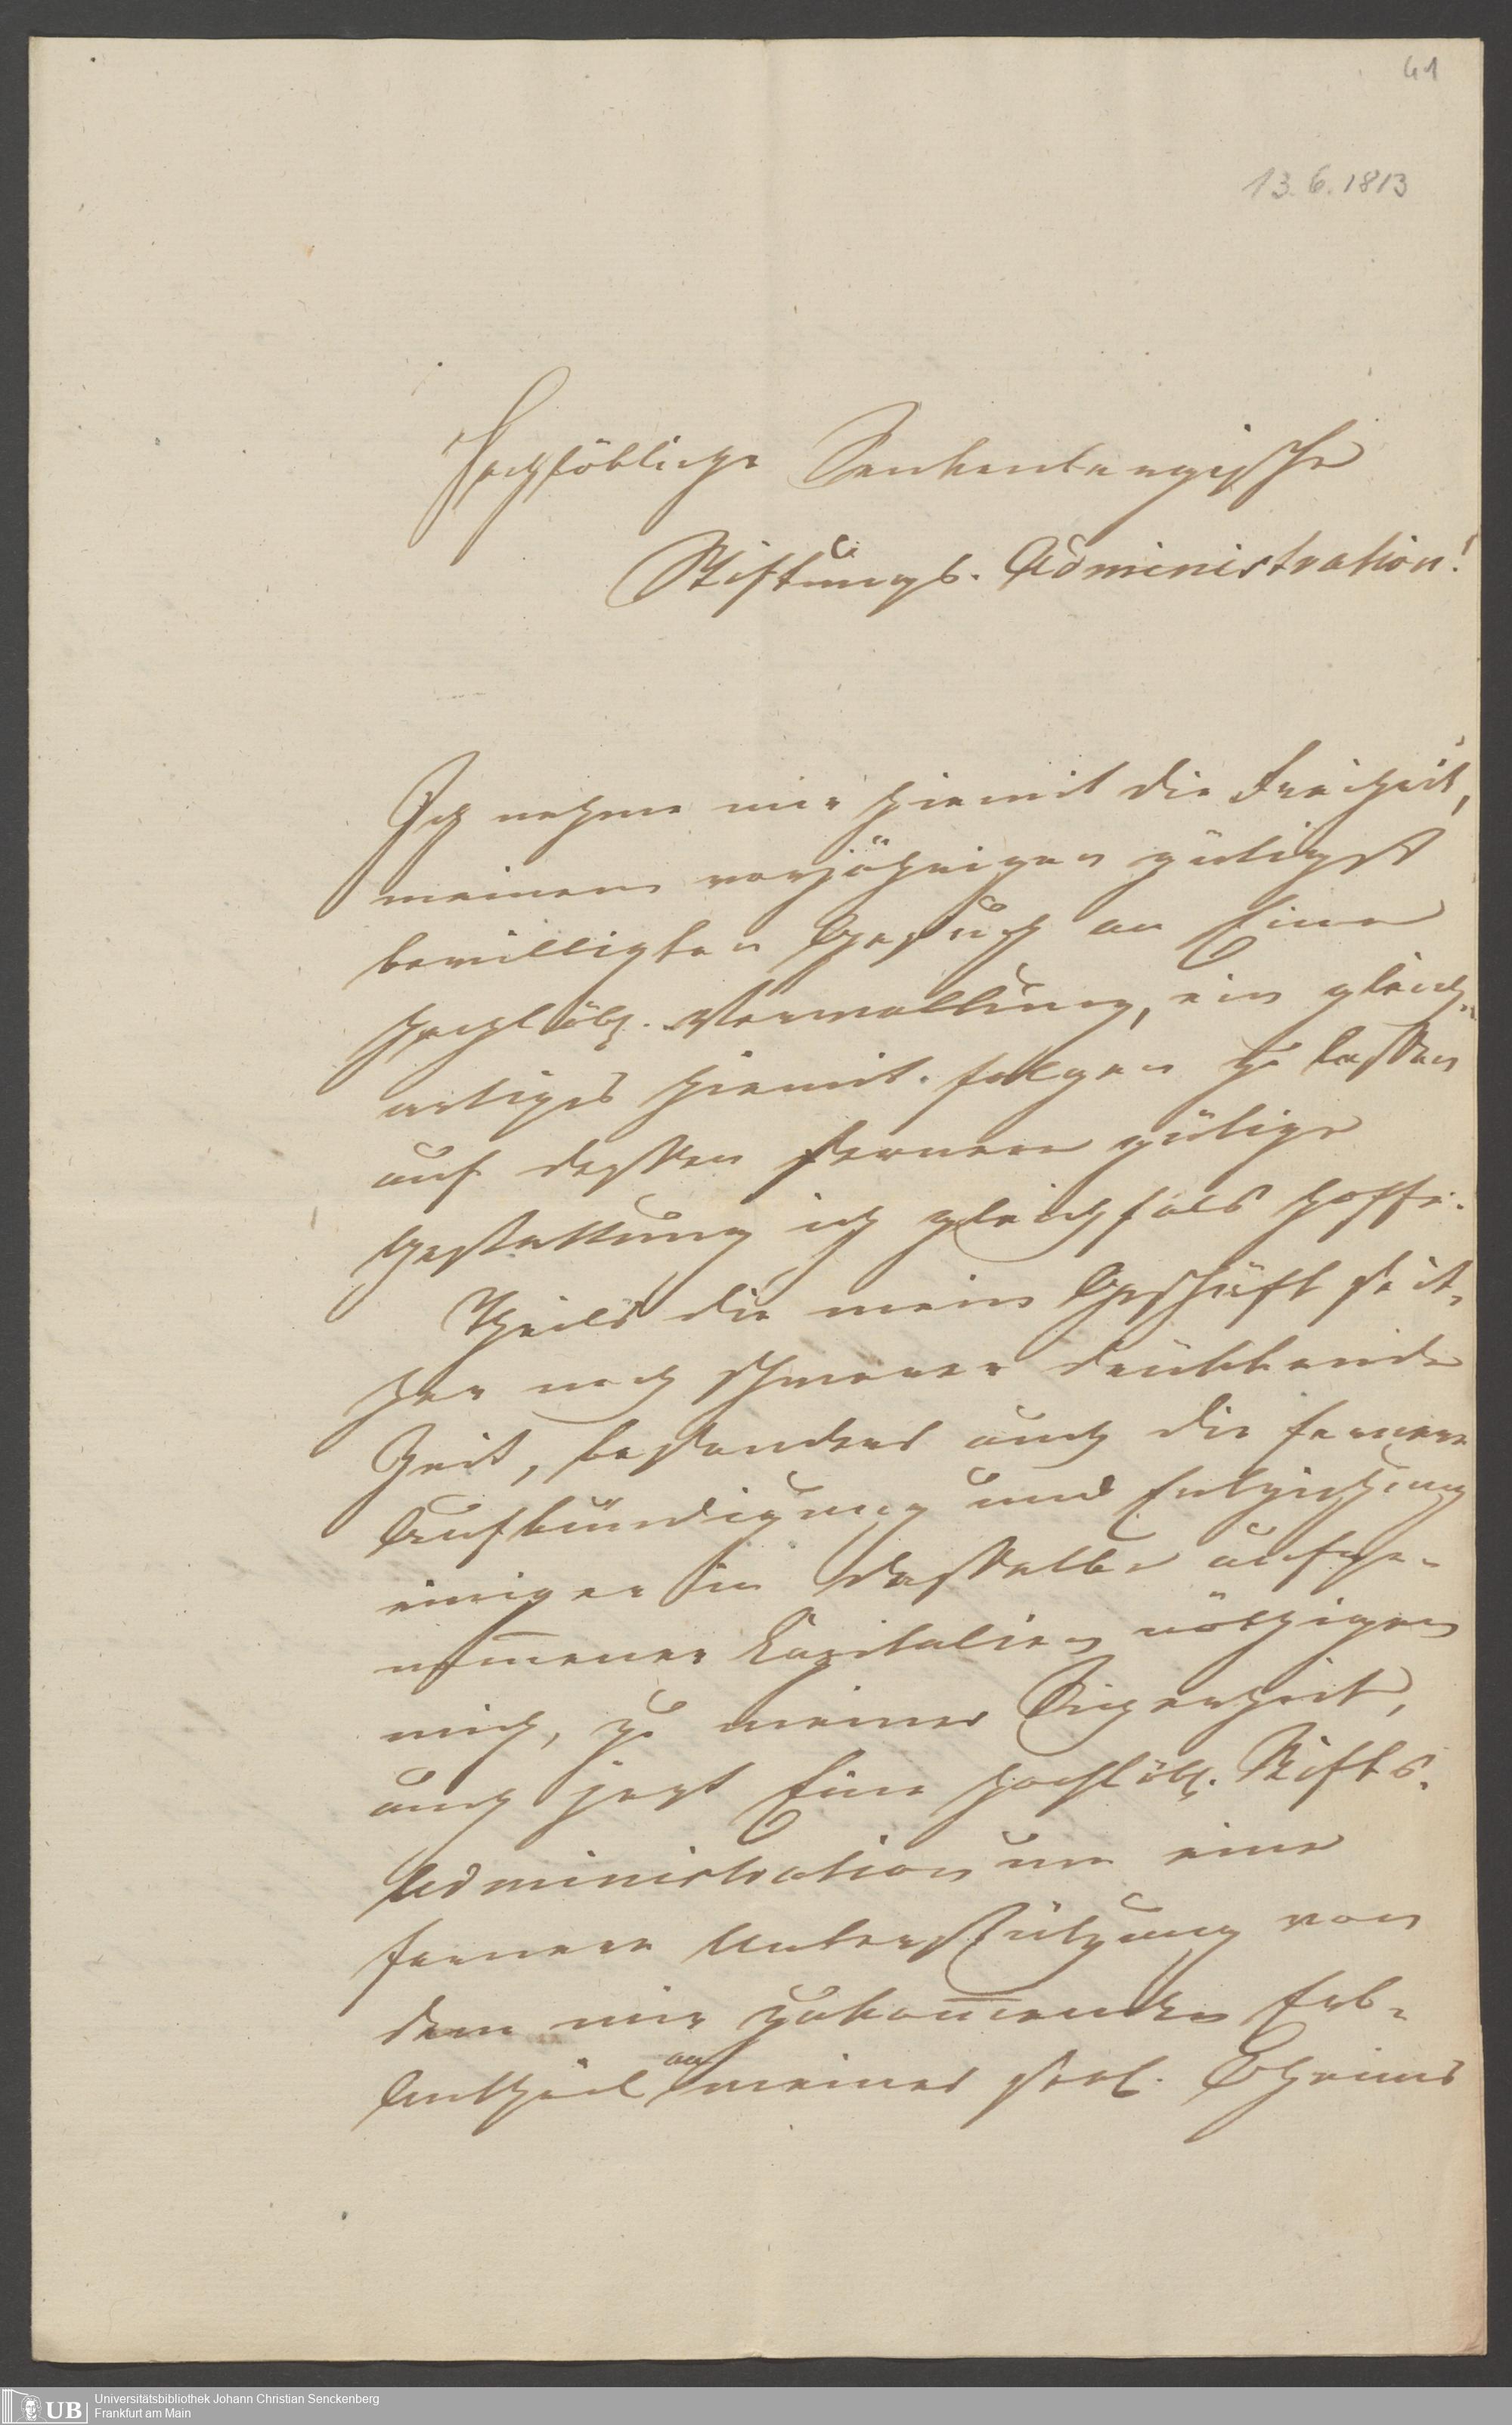 41
13.6.1813
Hochlöbliche Senkenbergische
Stiftungs-Administration!
Ich nehme mir hiemit die Freiheit,
meinem vorjährigen gütigst
bewilligten Gesuch an Eine
hochlöbl. Verwaltung, ein gleich-
artiges hiemit folgen zu lassen
auf dessen fernere gütige
Gestattung ich gleichfals hoffe.
Theils die mein Geschäft seit-
her noch schwerer drükkende
Zeit, besonders auch die fernere
Aufkündigung und Entziehung
einiger in dasselbe aufge-
nom̅ener Capitalien nöthigen
mich, zu meiner Sicherheit,
auch jezt Eine hochlöbl. Stifts-
Administration um eine
fernere Unterstützung von
dem mir zukom̅enden Erb-
Antheil an meines seel. Oheims
Universitätsbibliothek Johann Christian Senckenberg
Frankfurt am Main
UB